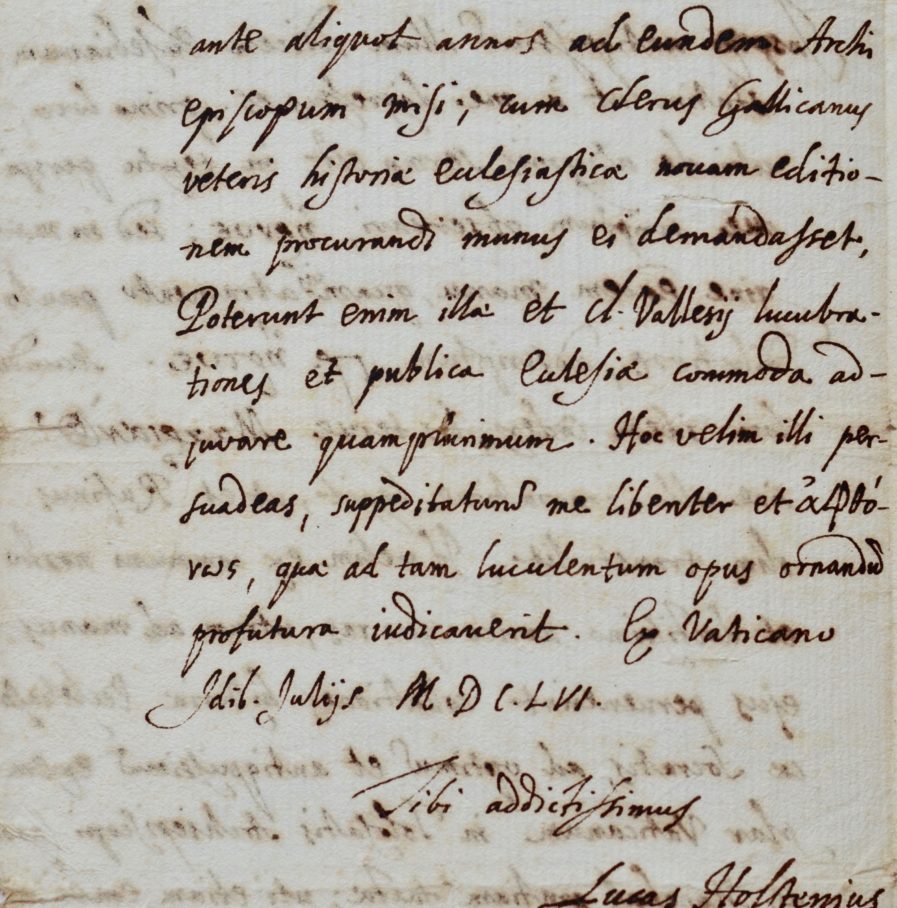 ante aliquot annos ad eundem Archi
episcopum misi, cum Clerus Gallicanus
veteris historiæ ecclesiasticæ novam editio-
nem procurandi munus ei demandasset.
Poterunt enim illæ et Cl. Vallesij lucubra-
tiones et publica Ecclesiæ commoda ad-
juvare quamplurimum. Hoc velim illi per-
suadeas, suppeditaturū me libenter et ἀφθό-
νως, quæ ad tam luculentum opus ornandū
profutura iudicaverit. Ex Vaticano
Idib. Julijs M.DC.LVI.
Tibi addictissimus
Lucas Holstenius